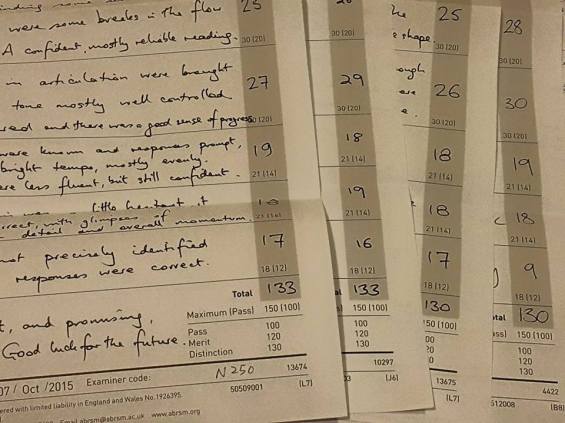 were some breaks in the flow 25
A confident, mostly reliable reading. 30 (20)
in articulation were brought
tone mostly well controlled 27
and there was a good sense of progress 30 (20)
were known and responses prompt, 19
bright tempo, mostly evenly.
less fluent, but still confident. 21 (14)
little hesitant, it
with glimpses of
detail and overall momentum. 21 (14)
not precisely identified 17
responses were correct. 18 (12)
Total 133
and promising, Maximum (Pass) 150 (100)
Good luck for the future. Pass 100
Merit 120
Distinction 130
07/ Oct /2015 Examiner code: N250 13674
50509001 (L7)
ered with limited liability in England and Wales No. 1926395
Email abrsm@abrsm.ac.uk www.abrsm.org
30 (20)
29
30 (20)
18
21 (14)
19
21 (14)
16
18 (12)
133
150 (100)
100
120
130
10297
(J6)
he 25
shape. 30 (20)
ough
are 26
30 (20)
18
21 (14)
18
21 (14)
17
18 (12)
130
150 (100)
100
120
130
13675
(L7)
28
30 (20)
30
30 (20)
19
21 (14)
18
21 (14)
9
18 (12)
130
150 (100)
100
120
130
4422
512008 (B8)